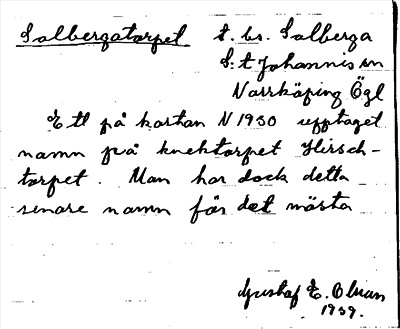 Solbergatorpet t. bs. Solberga
S:t Johannis sn
Norrköping Ögl
Ett på kartan N 1930 upptaget
namn på knektorpet Hirsch-
torpet. Man har dock detta
senare namn för det mästa
Gustaf E. Olsson
1939.